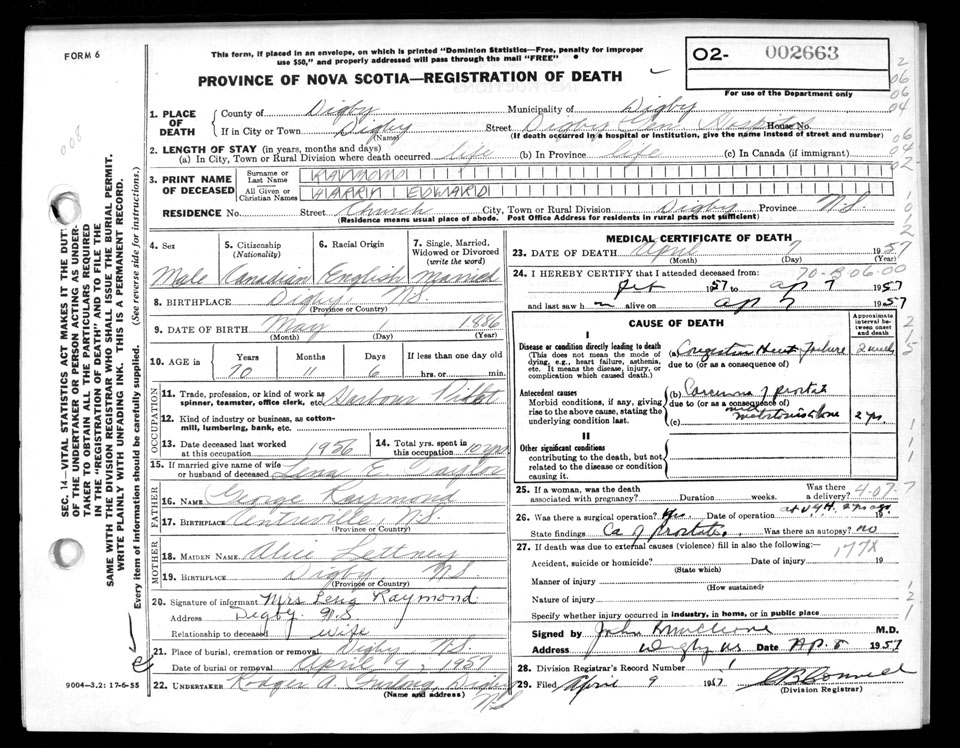 FORM 6
This form, if placed in an envelope, on which is printed "Dominion Statistics—Free, penalty for improper
use $50," and properly addressed will pass through the mail "FREE"
PROVINCE OF NOVA SCOTIA—REGISTRATION OF DEATH
02- 002663
For use of the Department only
008
SEC. 14—VITAL STATISTICS ACT MAKES IT THE DUTY
OF THE UNDERTAKER OR PERSON ACTING AS UNDER-
TAKER TO OBTAIN ALL THE PARTICULARS REQUIRED
IN THE "REGISTRATION OF DEATH" AND TO FILE THE
SAME WITH THE DIVISION REGISTRAR WHO SHALL ISSUE THE BURIAL PERMIT.
WRITE PLAINLY WITH UNFADING INK. THIS IS A PERMANENT RECORD.
Every item of information should be carefully supplied. (See reverse side for instructions.)
1. PLACE OF DEATH
County of Digby Municipality of Digby
If in City or Town Digby Street Digby Gen. Hospital House No.
(Name) (If death occurred in a hospital or institution, give the name instead of street and number)
2. LENGTH OF STAY (in years, months and days)
(a) In City, Town or Rural Division where death occurred life (b) In Province life (c) In Canada (if immigrant)
3. PRINT NAME OF DECEASED
Surname or Last Name RAYMOND
All Given or Christian Names HARRY EDWARD
RESIDENCE No. Street Church City, Town or Rural Division Digby Province N.S.
(Residence means usual place of abode. Post Office Address for residents in rural parts not sufficient)
4. Sex
Male
5. Citizenship (Nationality)
Canadian
6. Racial Origin
English
7. Single, Married, Widowed or Divorced (write the word)
Married
8. BIRTHPLACE Digby N.S.
(Province or Country)
9. DATE OF BIRTH May 1 1886
(Month) (Day) (Year)
10. AGE in Years Months Days If less than one day old
70 11 6 hrs. or min.
OCCUPATION
11. Trade, profession, or kind of work as spinner, teamster, office clerk, etc. Harbour Pilot
12. Kind of industry or business, as cotton-mill, lumbering, bank, etc.
13. Date deceased last worked at this occupation 1956
14. Total yrs. spent in this occupation 10 yrs
15. If married give name of wife or husband of deceased Lena E. Taylor
FATHER
16. NAME George Raymond
17. BIRTHPLACE Centreville N.S.
(Province or Country)
MOTHER
18. MAIDEN NAME Alice Lettney
19. BIRTHPLACE Digby N.S.
(Province or Country)
20. Signature of informant Mrs Lena Raymond
Address Digby N.S
Relationship to deceased wife
21. Place of burial, cremation or removal Digby N.S.
Date of burial or removal April 9, 1957
22. UNDERTAKER Rodger A. Digby
(Name and address) N.S
9004—3.2: 17-6-55
MEDICAL CERTIFICATE OF DEATH
23. DATE OF DEATH April 7 1957
(Month) (Day) (Year)
70-B06-00
24. I HEREBY CERTIFY that I attended deceased from:
Feb 1957 to ap 7 1957
and last saw h m alive on ap 7 1957
CAUSE OF DEATH
Approximate interval between onset and death
I
Disease or condition directly leading to death
(This does not mean the mode of
dying, e.g., heart failure, asthenia,
etc. It means the disease, injury, or
complication which caused death.)
(a) Congestive Heart failure 2 weeks
due to (or as a consequence of)
Antecedent causes
Morbid conditions, if any, giving
rise to the above cause, stating the
underlying condition last.
(b) Carcinoma of prostate
due to (or as a consequence of)
(c) metastasis to bone 2 yrs.
II
Other significant conditions
contributing to the death, but not
related to the disease or condition
causing it.
25. If a woman, was the death associated with pregnancy? Duration weeks. Was there a delivery? 4-07-7
26. Was there a surgical operation? Yes. Date of operation at V.G.H. 2 yrs ago. 19
State findings Ca of prostate. Was there an autopsy? no
27. If death was due to external causes (violence) fill in also the following:— 177X
Accident, suicide or homicide? Date of injury 19
(State which)
Manner of injury
(How sustained)
Nature of injury
Specify whether injury occurred in industry, in home, or in public place
Signed by John M.D.
Address Digby NS Date Ap. 8 1957
28. Division Registrar's Record Number
29. Filed April 9 1957
(Division Registrar)